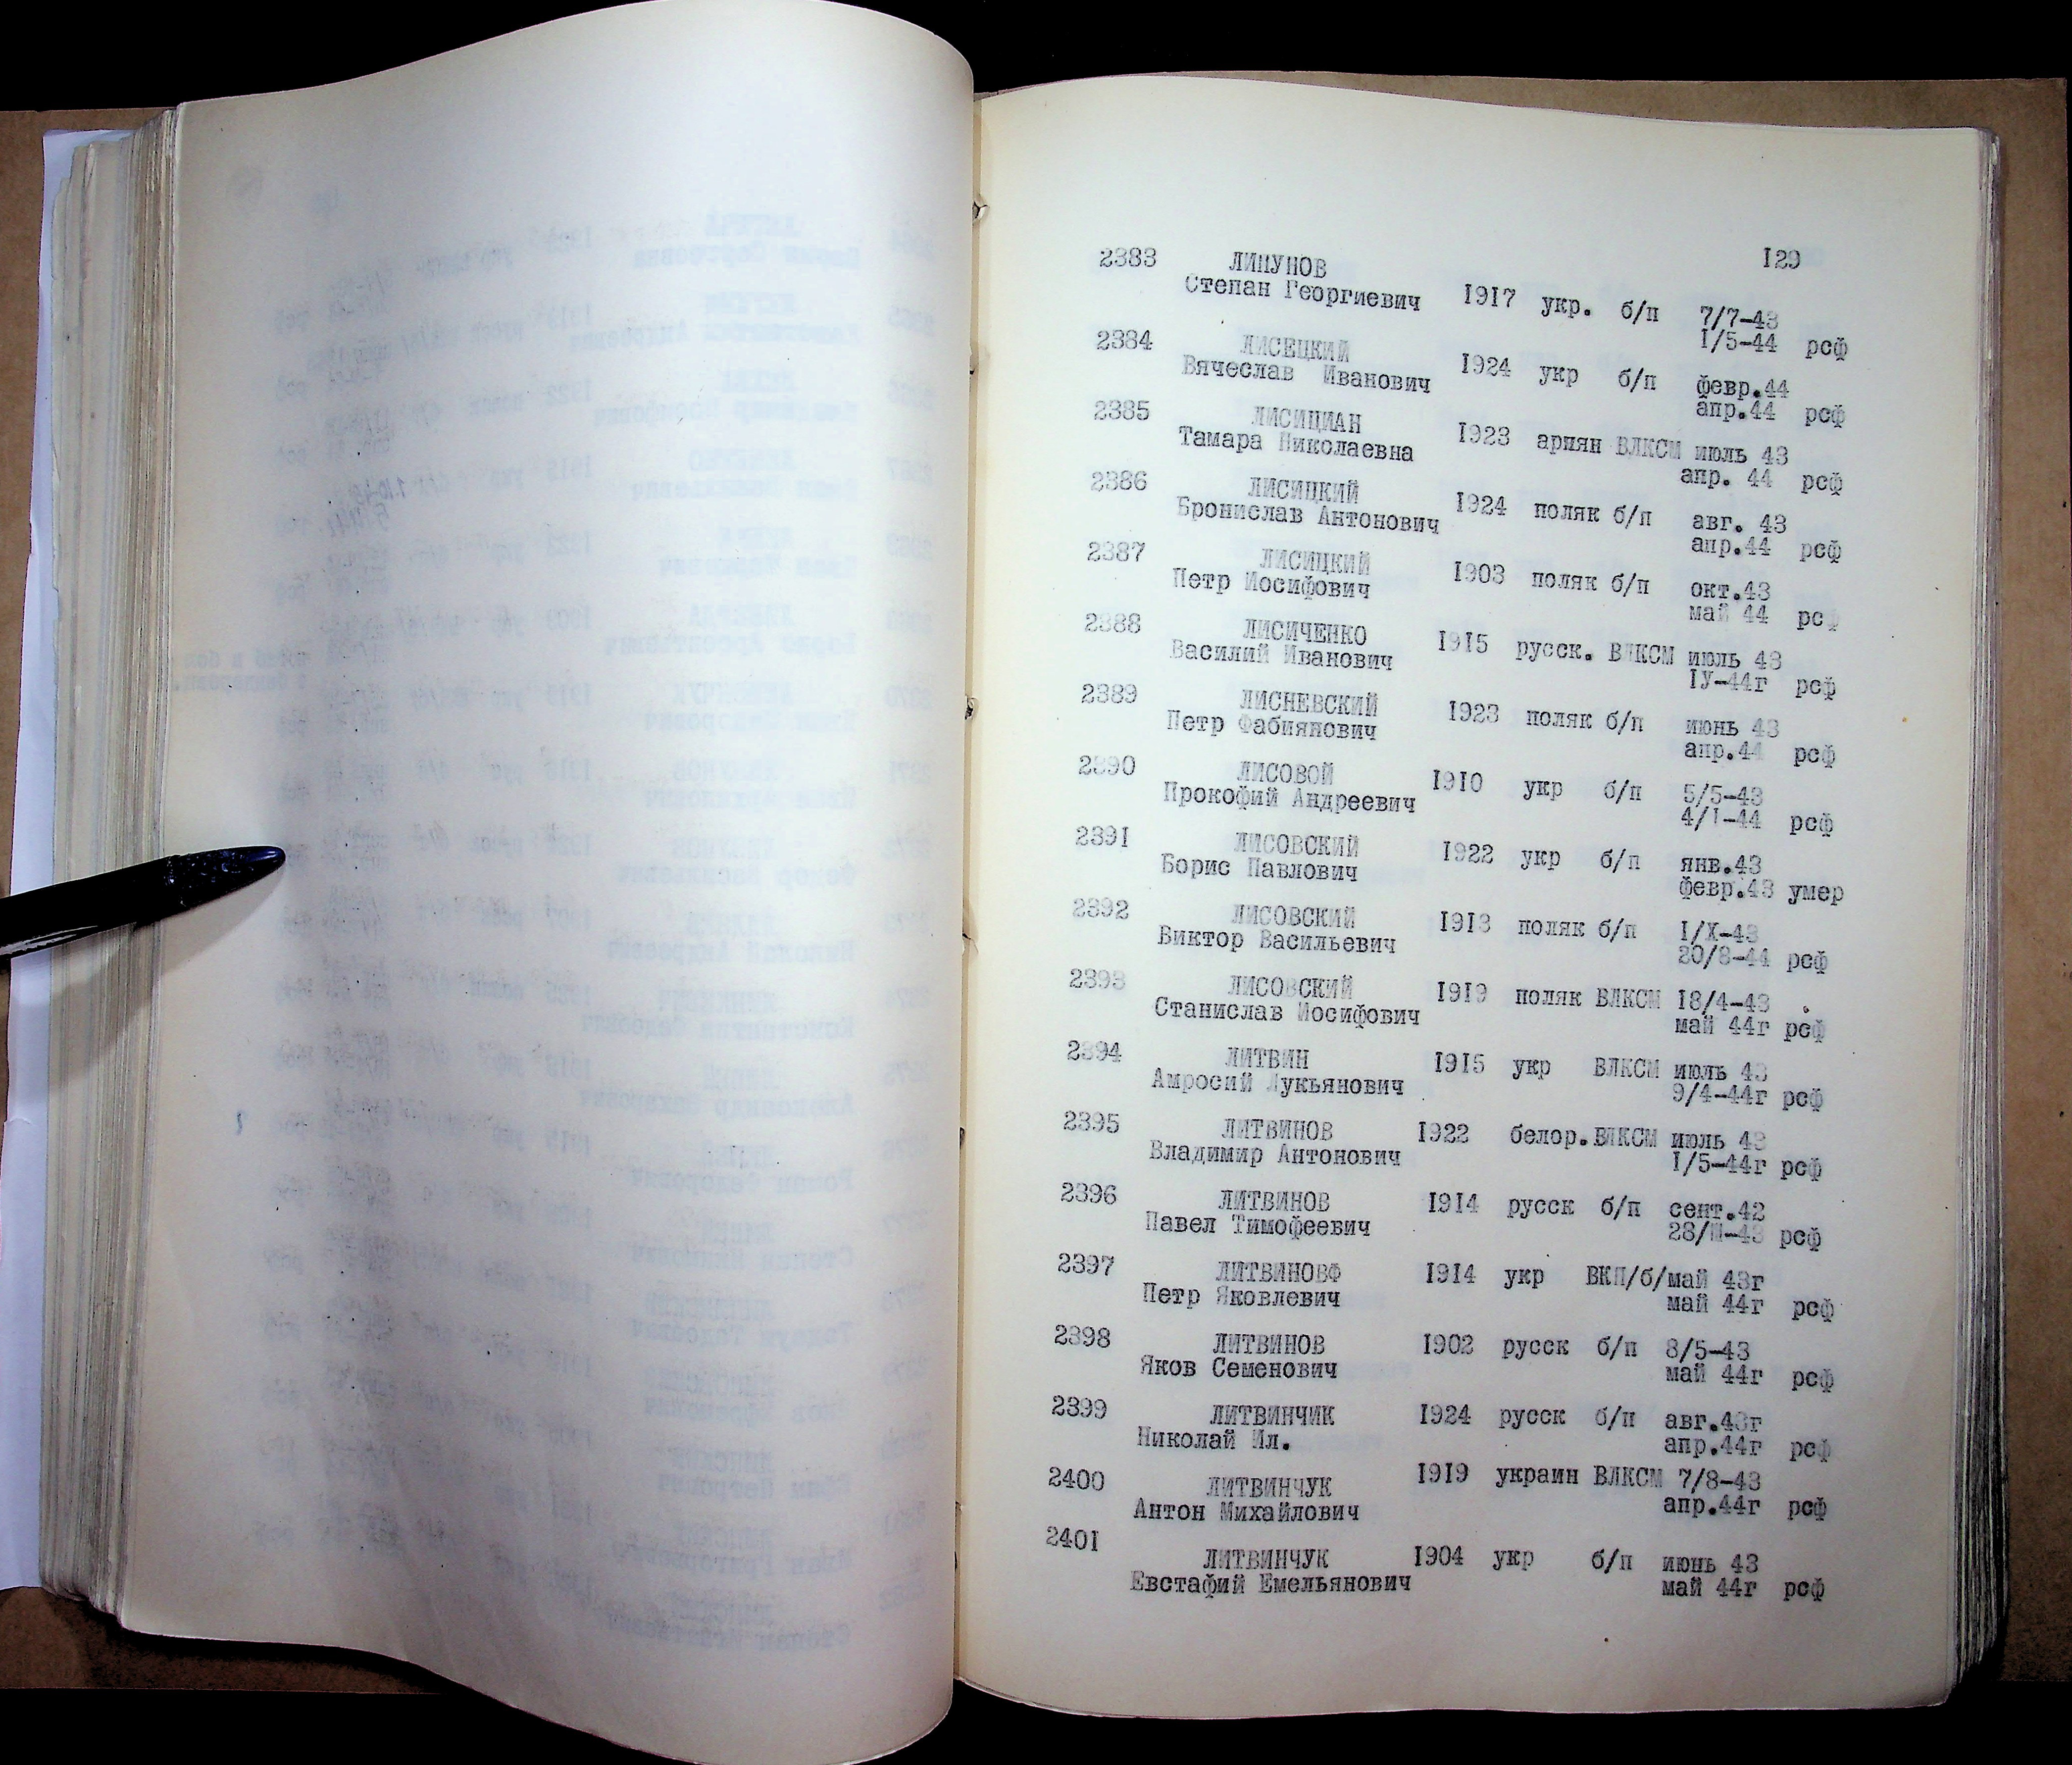 129
2383 ЛИПУНОВ
Степан Георгиевич 1917 укр. б/п 7/7-43
1/5-44 рсф
2384 ЛИСЕЦКИЙ
Вячеслав Иванович 1924 укр б/п февр.44
апр.44 рсф
2385 ЛИСИЦИАН
Тамара Николаевна 1923 армян ВЛКСМ июль 43
апр. 44 рсф
2386 ЛИСИЦКИЙ
Бронислав Антонович 1924 поляк б/п авг. 43
апр.44 рсф
2387 ЛИСИЦКИЙ
Петр Иосифович 1903 поляк б/п окт.43
май 44 рсф
2388 ЛИСИЧЕНКО
Василий Иванович 1915 русск. ВЛКСМ июль 43
IУ-44г рсф
2389 ЛИСНЕВСКИЙ
Петр Фабиянович 1923 поляк б/п июнь 43
апр.44 рсф
2390 ЛИСОВОЙ
Прокофий Андреевич 1910 укр б/п 5/5-43
4/I-44 рсф
2391 ЛИСОВСКИЙ
Борис Павлович 1922 укр б/п янв.43
февр.43 умер
2392 ЛИСОВСКИЙ
Виктор Васильевич 1913 поляк б/п I/X-43
20/8-44 рсф
2393 ЛИСОВСКИЙ
Станислав Иосифович 1919 поляк ВЛКСМ 18/4-43
май 44г рсф
2394 ЛИТВИН
Амросий Лукьянович 1915 укр ВЛКСМ июль 43
9/4-44г рсф
2395 ЛИТВИНОВ
Владимир Антонович 1922 белор. ВЛКСМ июль 43
1/5-44г рсф
2396 ЛИТВИНОВ
Павел Тимофеевич 1914 русск б/п сент.42
28/Ш-43 рсф
2397 ЛИТВИНОВФ
Петр Яковлевич 1914 укр ВКП/б/ май 43г
май 44г рсф
2398 ЛИТВИНОВ
Яков Семенович 1902 русск б/п 8/5-43
май 44г рсф
2399 ЛИТВИНЧИК
Николай Ил. 1924 русск б/п авг.43г
апр.44г рсф
2400 ЛИТВИНЧУК
Антон Михайлович 1919 украин ВЛКСМ 7/8-43
апр.44г рсф
2401 ЛИТВИНЧУК
Евстафий Емельянович 1904 укр б/п июнь 43
май 44г рсф